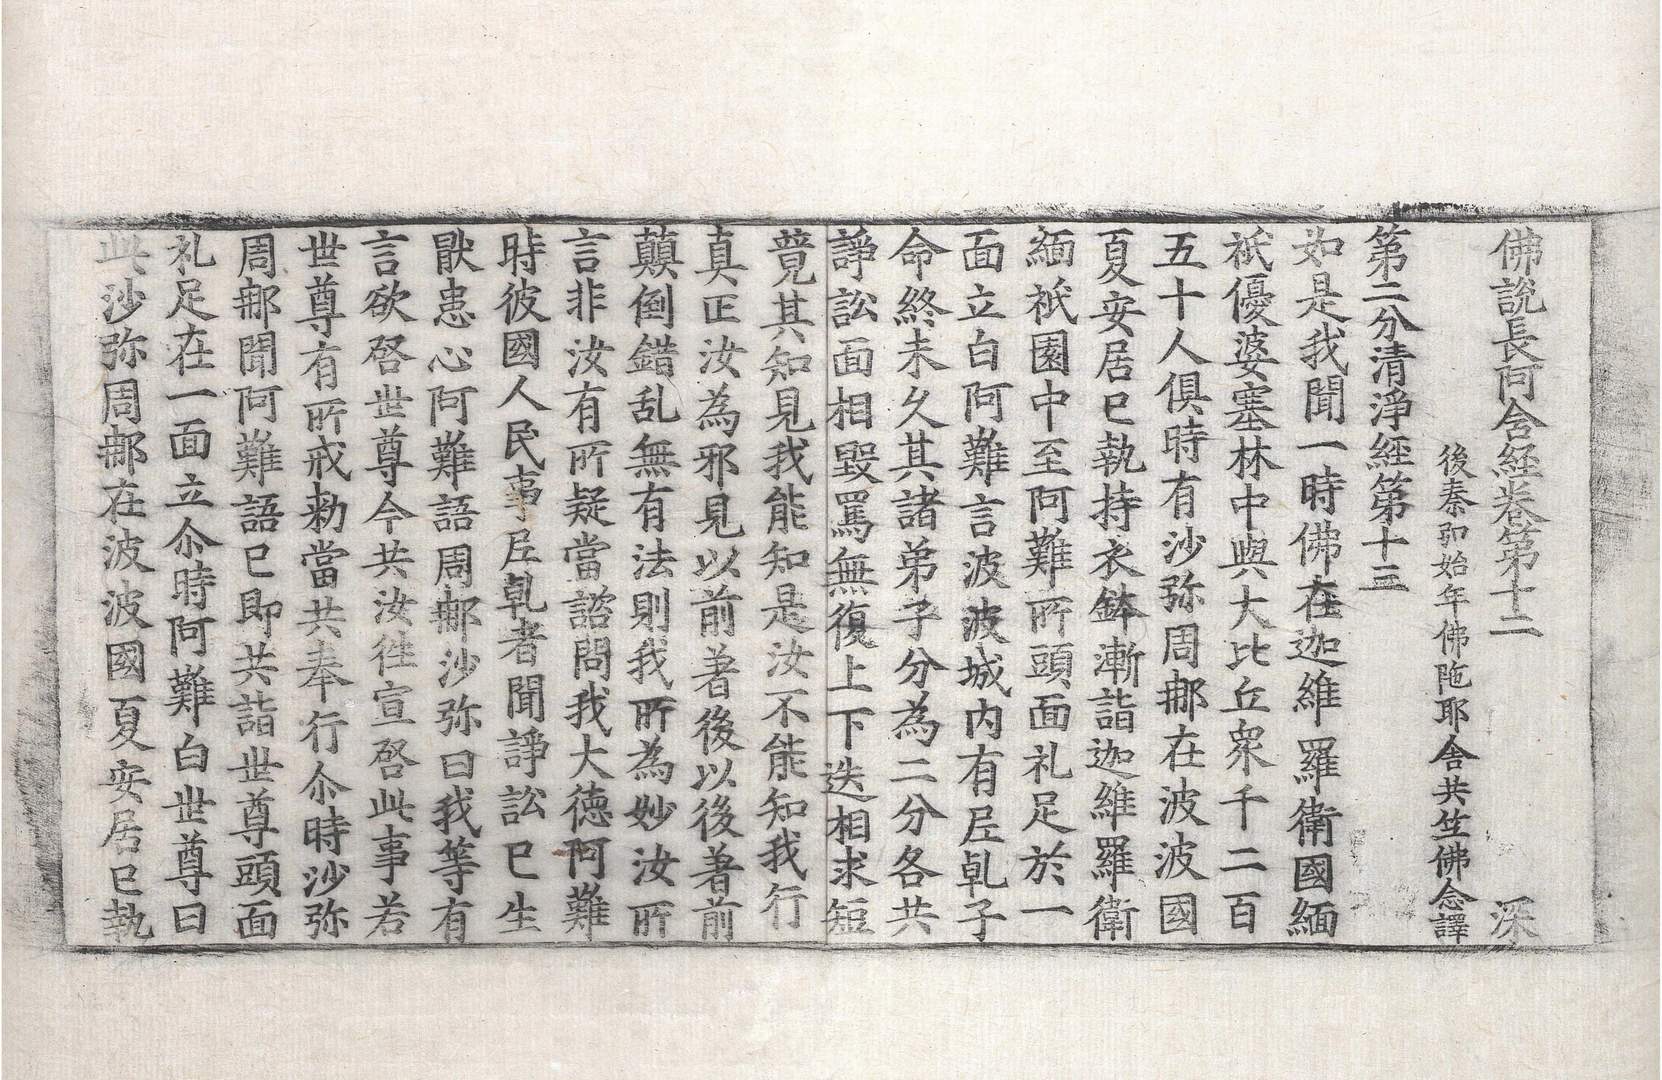 佛說長阿含経卷第十二 深
後秦弘始年佛陁耶舍共竺佛念譯
第二分清淨經第十三
如是我聞一時佛在迦維羅衛國緬
祇優婆塞林中與大比丘衆千二百
五十人俱時有沙弥周那在波波國
夏安居已執持衣鉢漸詣迦維羅衛
緬祇園中至阿難所頭面礼足於一
面立白阿難言波波城内有𡰱乹子
命終未久其諸弟子分為二分各共
諍訟面相毀罵無復上下迭相求短
竟其知見我能知是汝不能知我行
真正汝為邪見以前著後以後著前
顛倒錯乱無有法則我所為妙汝所
言非汝有所疑當諮問我大徳阿難
時彼國人民事𡰱乹者聞諍訟已生
猒患心阿難語周那沙弥曰我等有
言欲啓世尊今共汝徃宣啓此事若
世尊有所戒勑當共奉行尒時沙弥
周那聞阿難語已即共詣世尊頭面
礼足在一面立尒時阿難白世尊曰
此沙弥周那在波波國夏安居已執